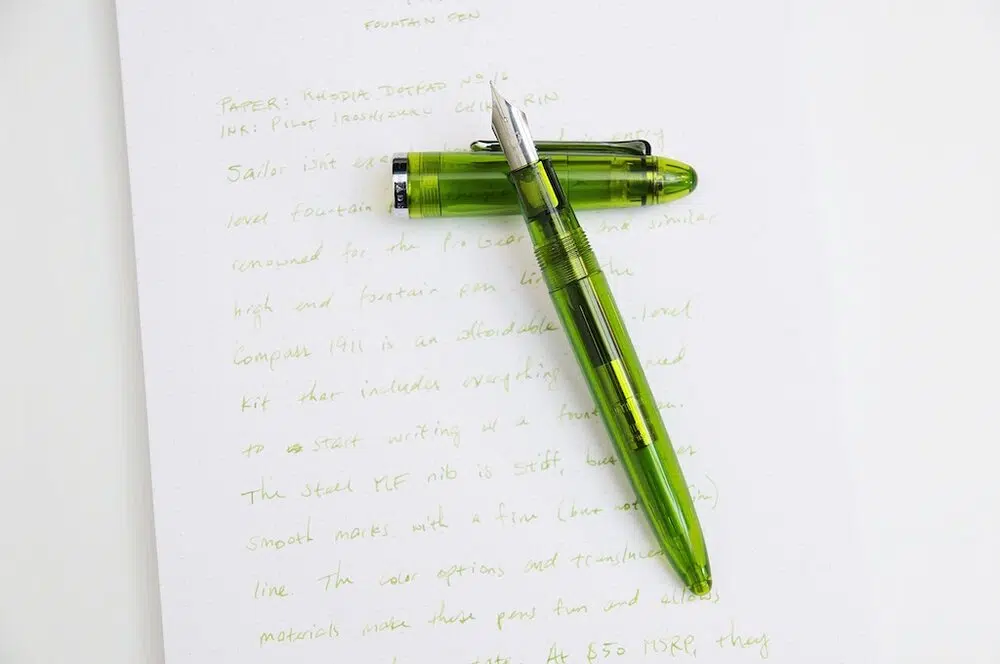 FOUNTAIN PEN
PAPER: RHODIA DOTPAD No 16
INK: PILOT IROSHIZUKU CHIKU RIN
Sailor isn't entry
level fountain
renowned for the Pro Gear and similar
high end fountain pen the
Compass 1911 is an affordable level
kit that includes everything need
to start writing w a fountain pen.
The steel MF nib is stiff, but
smooth marks with a fine (but not
line. The color options and translucent
materials make these pens fun and allows
At $50 MSRP, they